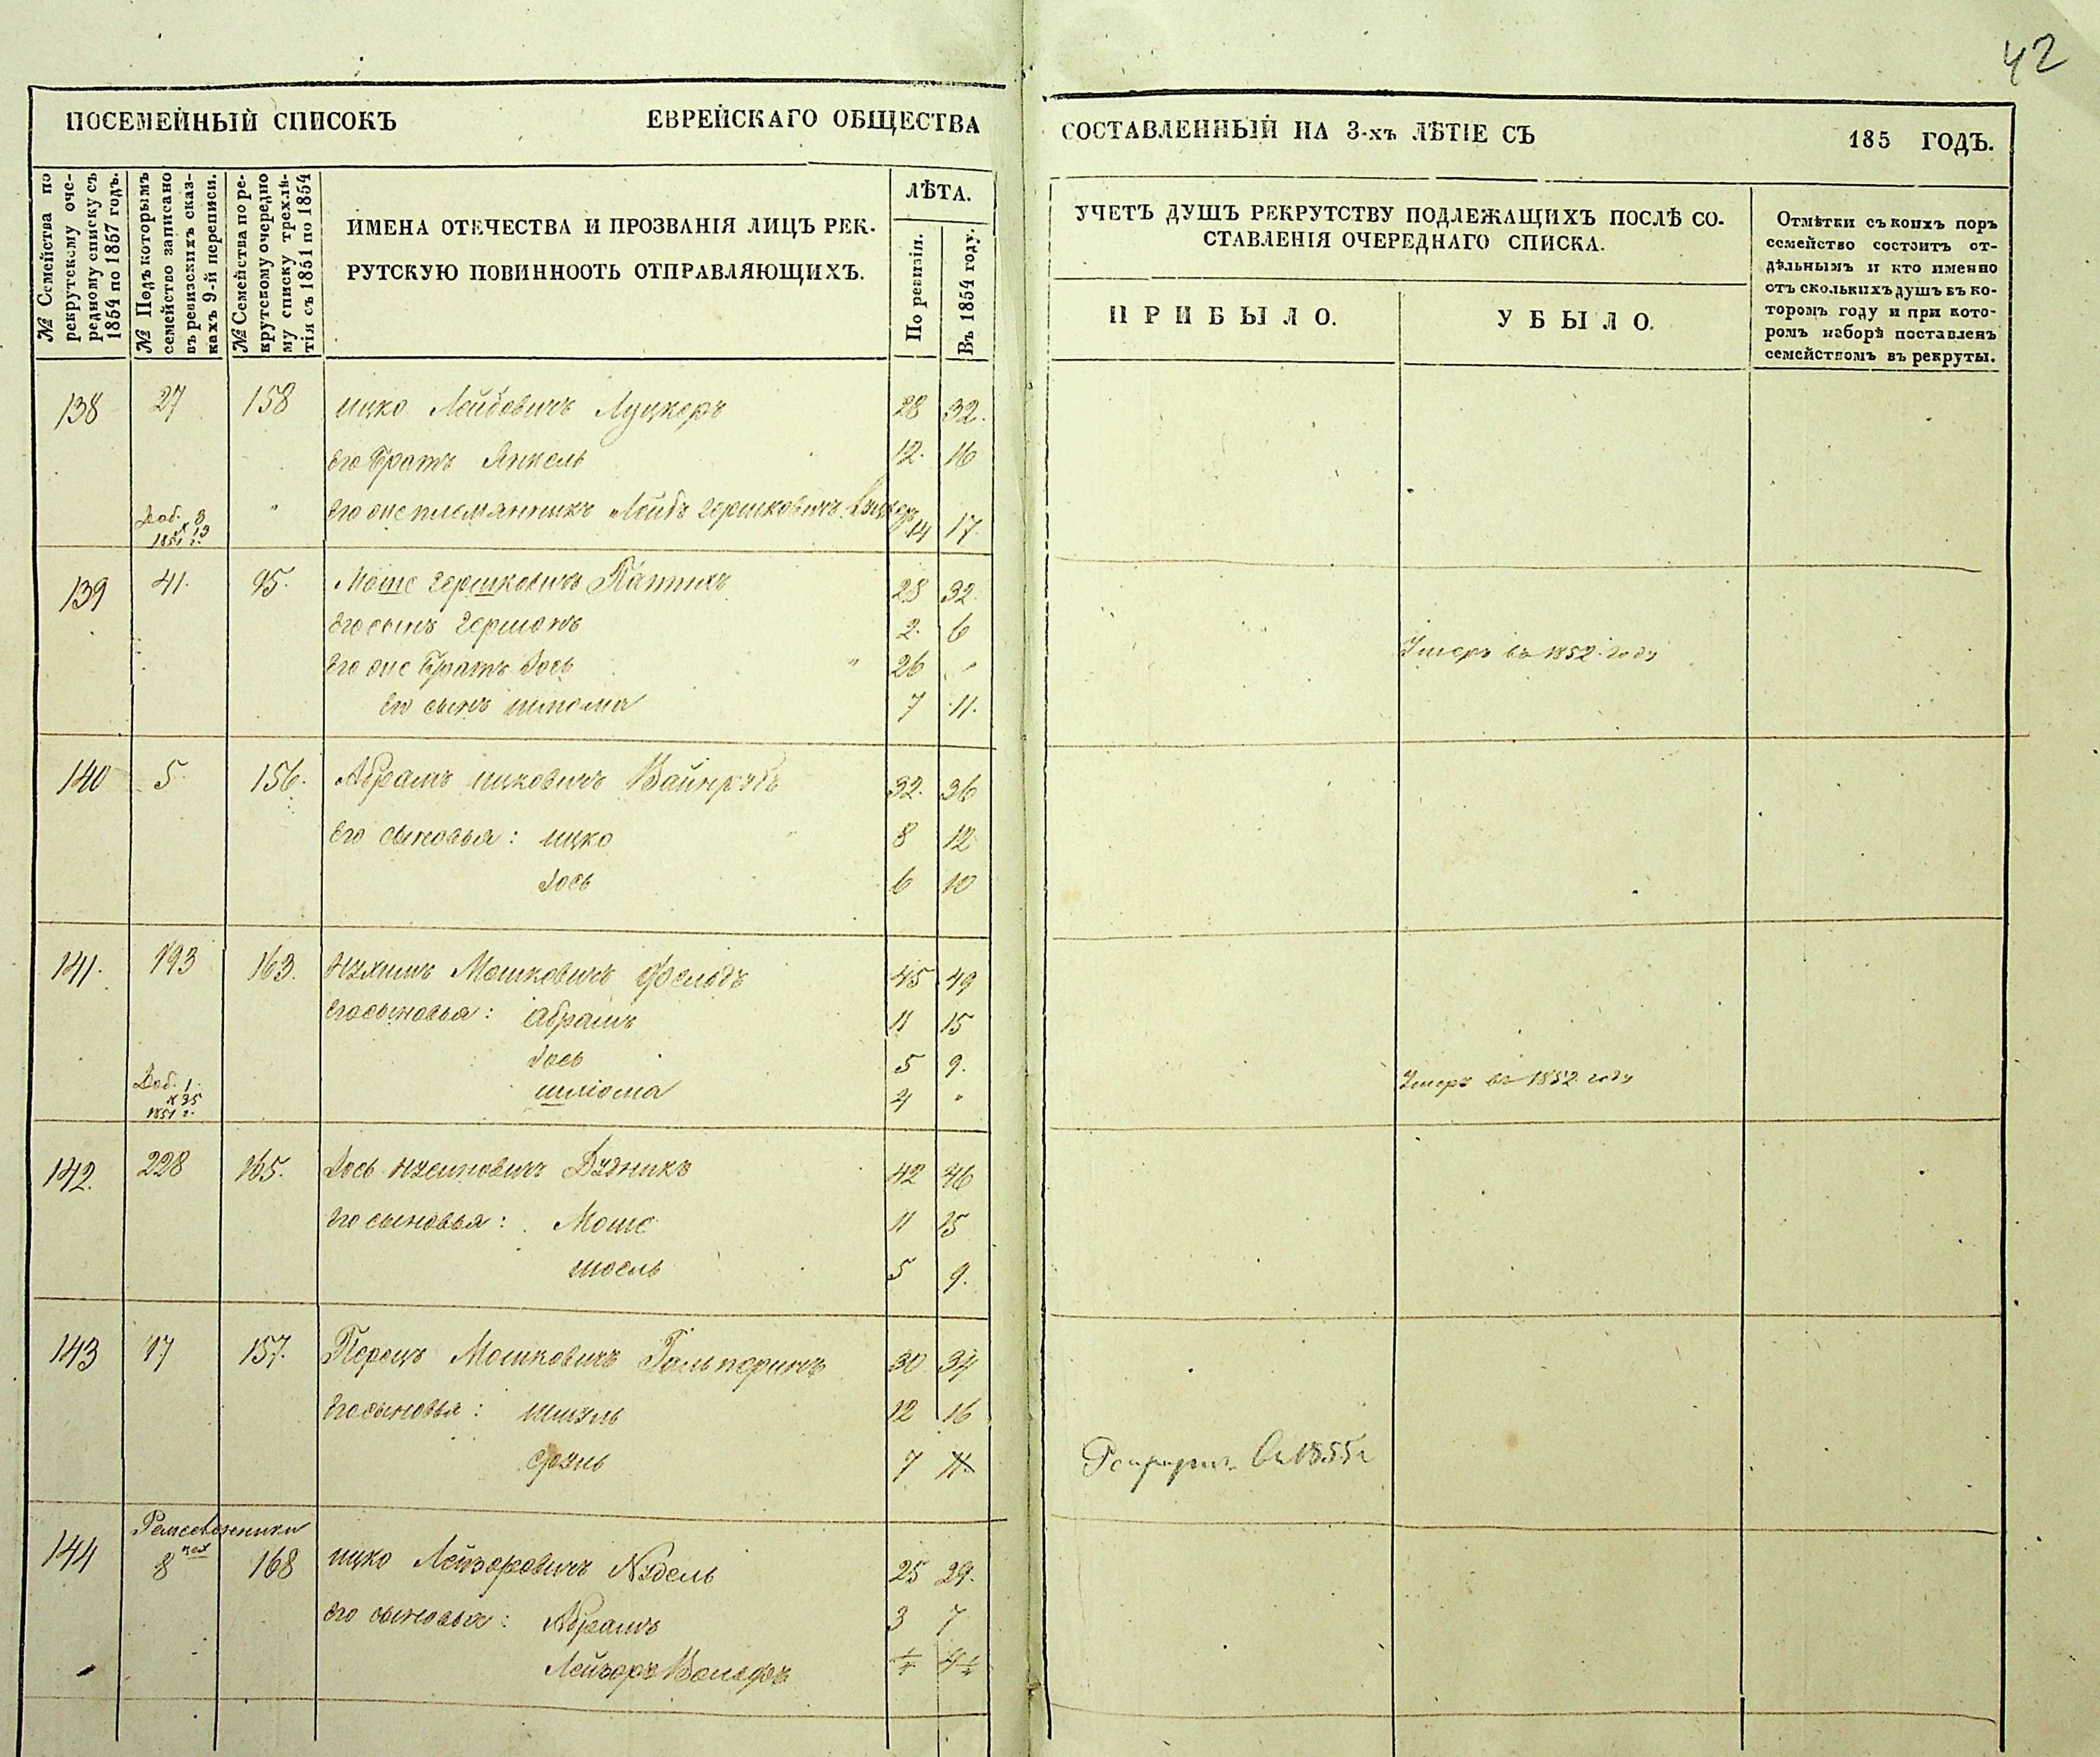 42
ПОСЕМЕЙНЫЙ СПИСОКЪ ЕВРЕЙСКАГО ОБЩЕСТВА СОСТАВЛЕННЫЙ НА 3-хъ ЛѢТІЕ СЪ 185 ГОДЪ.
№ Семейства по рекрутскому очередному списку съ 1854 по 1857 годъ.
№ Подъ которымъ семейство записано въ ревизскихъ сказкахъ 9-й переписи.
№ Семейства по рекрутскому очередному списку трехлѣтія съ 1851 по 1854
ИМЕНА ОТЕЧЕСТВА И ПРОЗВАНІЯ ЛИЦЪ РЕК-
РУТСКУЮ ПОВИННООТЬ ОТПРАВЛЯЮЩИХЪ.
ЛѢТА.
По ревизіи.
Въ 1854 году.
УЧЕТЪ ДУШЪ РЕКРУТСТВУ ПОДЛЕЖАЩИХЪ ПОСЛѢ СО-
СТАВЛЕНІЯ ОЧЕРЕДНАГО СПИСКА.
ПРИБЫЛО.
УБЫЛО.
Отмѣтки съ коихъ поръ
семейство состоитъ от-
дѣльнымъ и кто именно
отъ сколькихъ душъ въ ко-
торомъ году и при кото-
ромъ наборѣ поставленъ
семействомъ въ рекруты.
138 27 158 Ицко Лейбовичъ Луцкеръ 28 32.
Его Братъ Янкель 12. 16
Доб. 3 № 13 1851 г. " Его же племянникъ Лейбъ Гершковичъ 14 17
139 41. 95. Моше Гершковичъ 28 32.
Его сынъ Гершонъ 2. 6
Его же Братъ Іось " 26 " Умеръ въ 1852 году
Его сынъ Шлома 7 11.
140 5. 156. Абрамъ Ицковичъ Вайнрубъ 32. 36
Его сыновья: Ицко 8 12
Іось 6 10
141. 193 163. Нухимъ Мошковичъ 45 49
Его сыновья: Абрамъ 11 15
Іось 5 9.
Доб. 1. № 35 1851 г. Шліома 4 " Умеръ въ 1852 году
142. 228 165. Іось Нусиновичъ Дудникъ 42 46
Его сыновья: Моше 11 15
Іосель 5 9.
143 17 157. Перецъ Мошковичъ Гальперинъ 30 34
Его сыновья: Шмуль 12 16
Сруль 7 11. въ 1855 г
Ремесленники
144 8 цех 168 Ицко Лейзоровичъ Нудель 25 29.
Его сыновья: Абрамъ 3 7
Лейзоръ Вольфъ